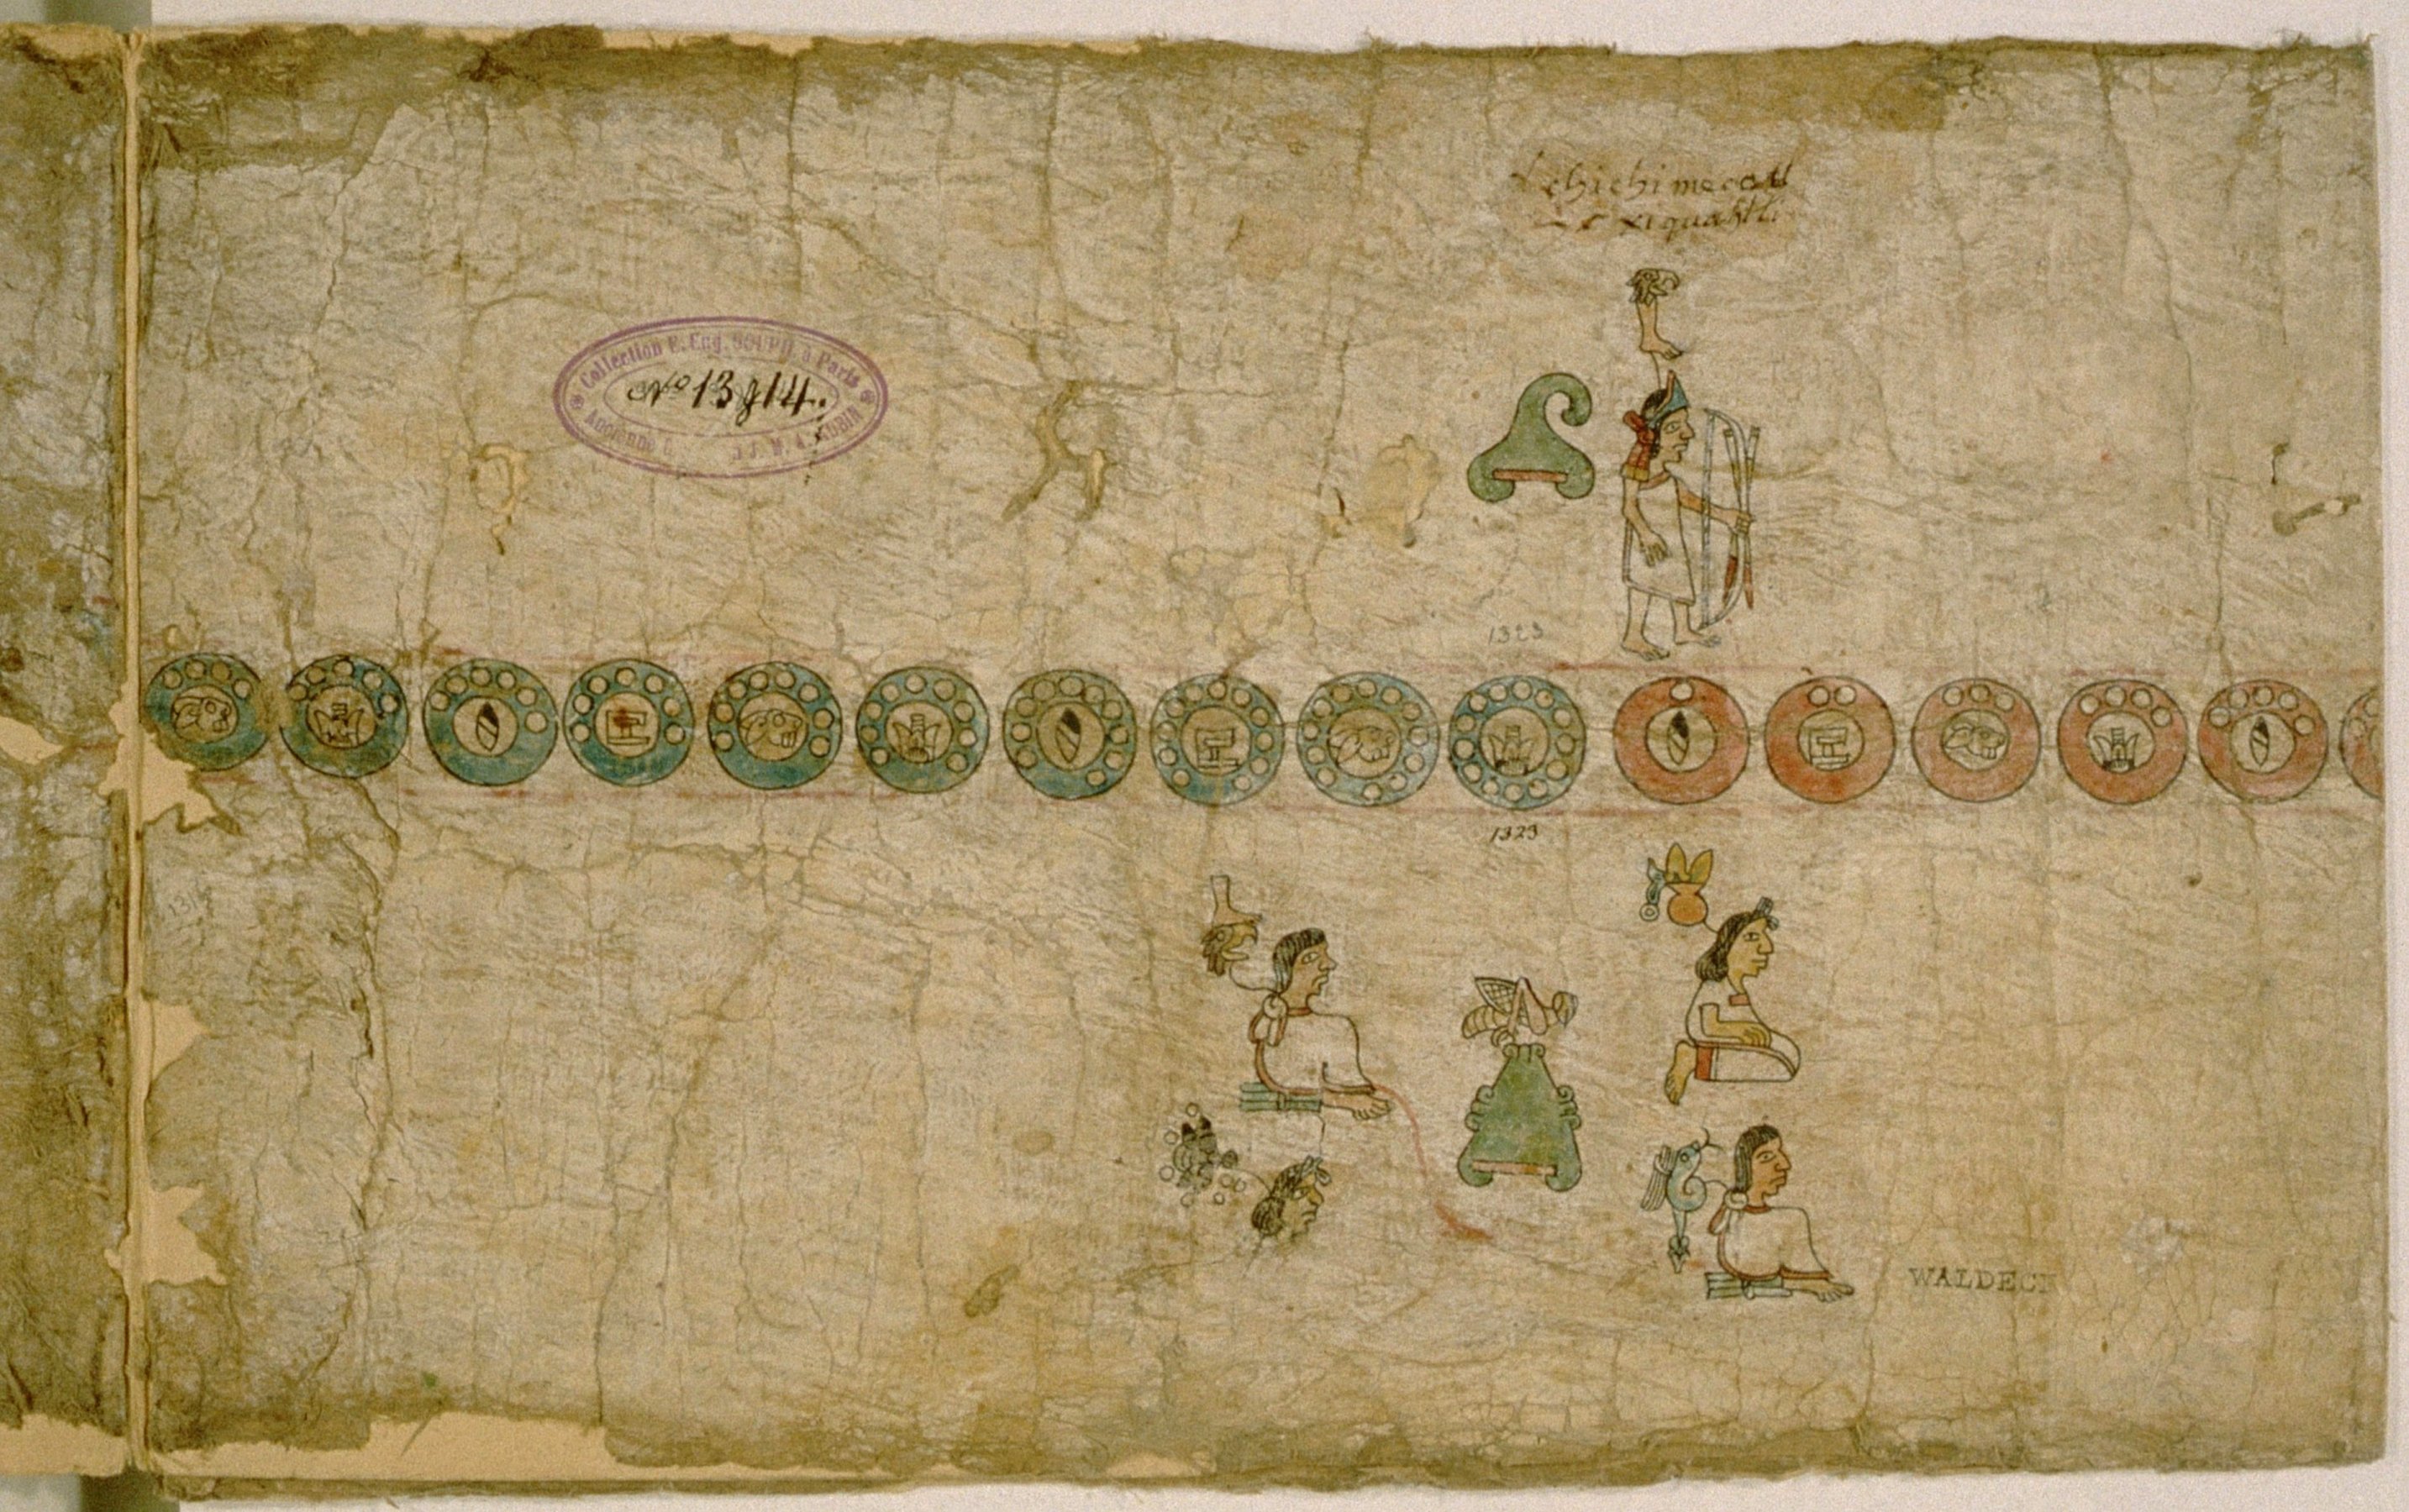 chichimecatl
Collection E. Eug. GOUPIL à Paris
No 13 & 14.
Ancienne J. M. A. AUBIN
1323
1323
WALDECK